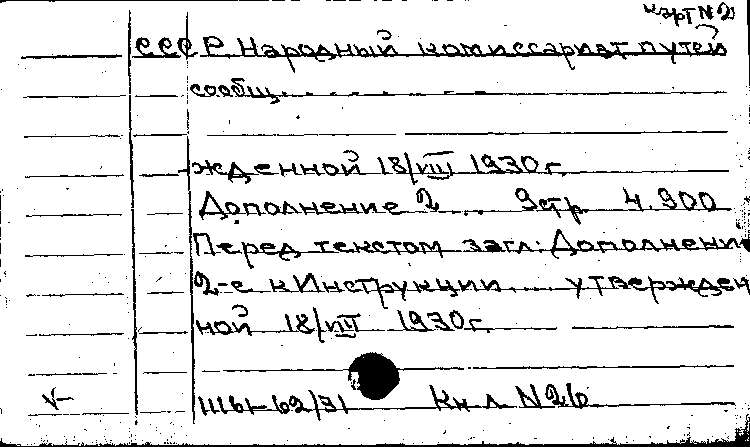 карт № 2
СССР. Народный комиссариат путей
сообщ. . . . . . .
жденной 18/VIII 1930г.
Дополнение 2 ... 9стр. 4.900
Перед текстом загл: Дополнени
2-е к Инструкции.... утвержден
ной 18/VIII 1930г.
11161-62/31 Кн л N26